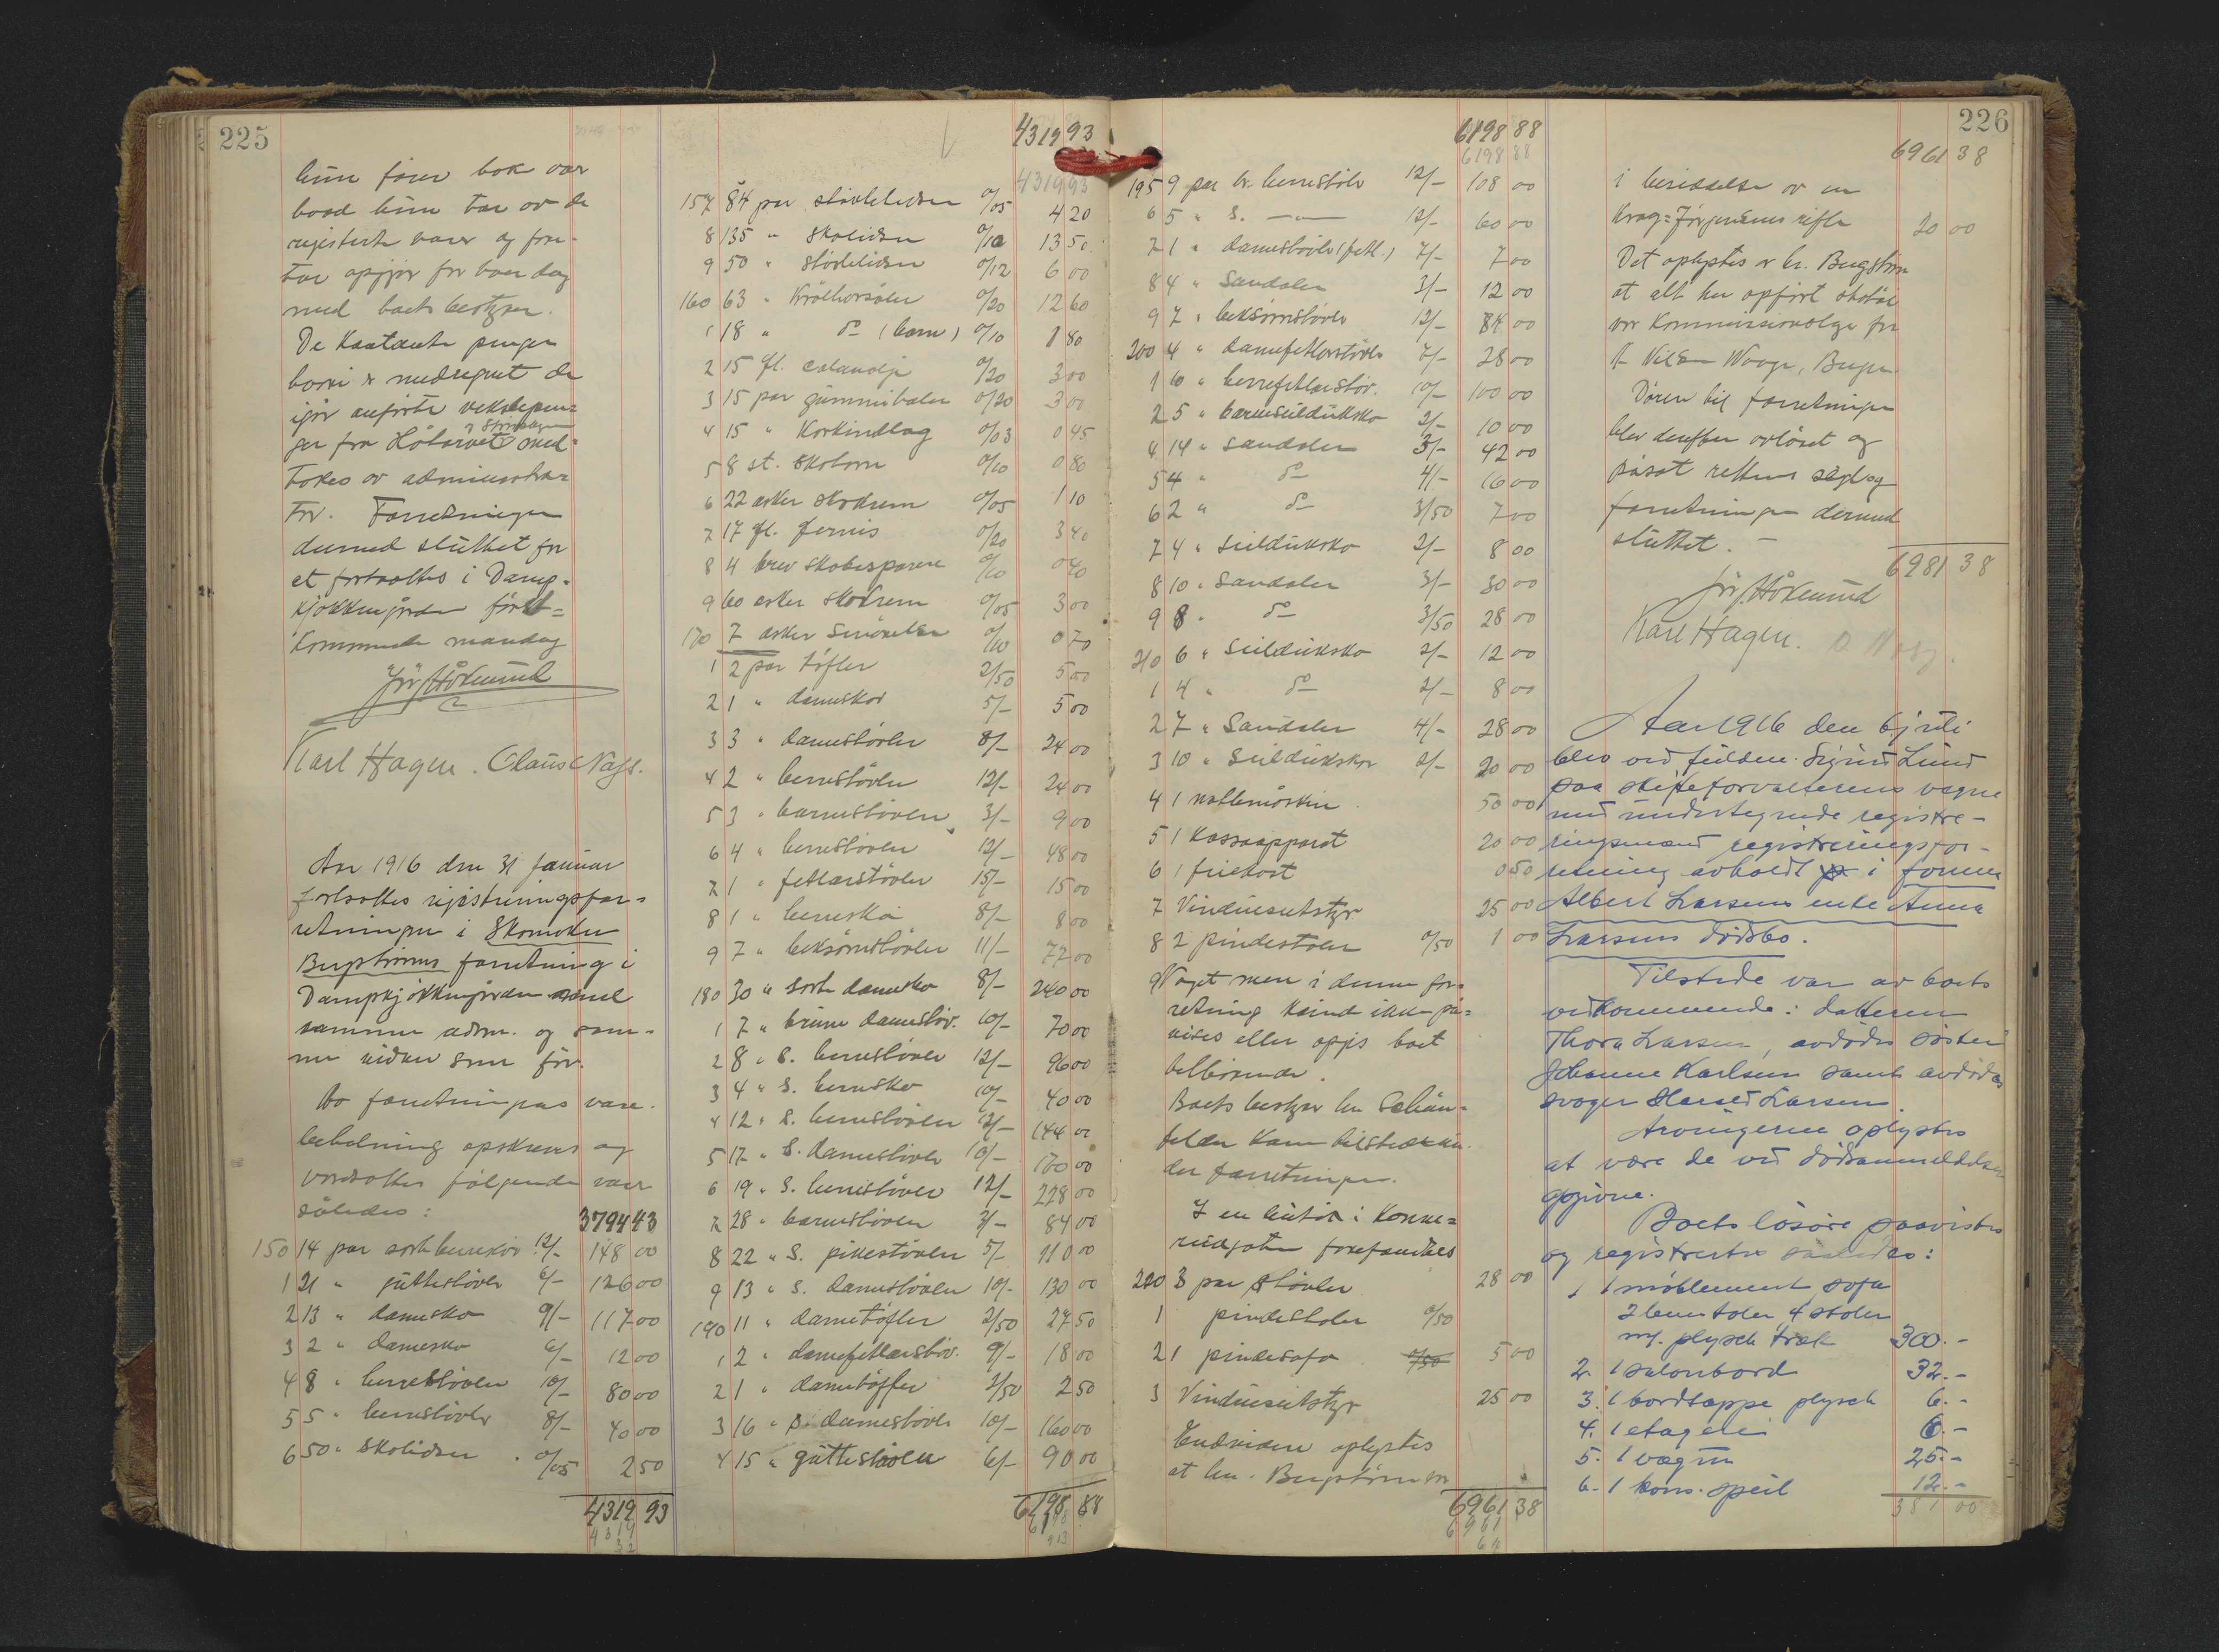 225
hun fører bok over
hvad hun tar av de
registrerte varer og fore-
tar opgjør for hver dag
med boets bestyrer.
De kontante penger
medregnet de
igår anførte vekslepen-
ger fra med-
toges av administra-
tor. Forretningen
dermed sluttet for
at fortsættes i Damp-
kjøkkengården først-
kommende mandag
Karl Hagen. Claus Næss.
Aar 1916 den 31 januar
fortsattes registreringsfor-
retningen i Skomaker
Bergstrøms forretning i
Dampkjøkkengården med
samme adm. og sam-
me vidner som før.
Av forretningens vare-
beholdning opskreves og
verdsattes følgende varer
således:
3794 43
150 14 par sorte herresko 12/- 148 00
1 21 " guttestøvler 6/- 126 00
2 13 " damesko 9/- 117 00
3 2 " damesko 6/- 12 00
4 8 " herrestøvler 10/- 80 00
5 5 " herrestøvler 8/- 40 00
6 50 " skolidser 0/05 2 50
4319 93
4319 93
4319 93
157 84 par støvlelidser 0/05 4 20
8 135 " skolidser 0/10 13 50
9 50 " støvlelidser 0/12 6 00
160 63 " Krølhårsåler 0/20 12 60
1 18 " do (barn) 0/10 1 80
2 15 fl. 0/20 3 00
3 15 par gummihæler 0/20 3 00
4 15 " Korkindlæg 0/03 0 45
5 8 st. skohorn 0/10 0 80
6 22 æsker skokrem 0/05 1 10
7 17 fl. fernis 0/20 3 40
8 4 brev skobesparere 0/10 0 40
9 60 æsker skokrem 0/05 3 00
170 7 æsker smørelse 0/10 0 70
1 2 par tøfler 2/50 5 00
2 1 " damesko 5/- 5 00
3 3 " damestøvler 8/- 24 00
4 2 " herrestøvler 12/- 24 00
5 3 " barnestøvler 3/- 9 00
6 4 " herrestøvler 12/- 48 00
7 1 " fetlærstøvler 15/- 15 00
8 1 " herresko 8/- 8 00
9 7 " beksømstøvler 11/- 77 00
180 30 " sorte damesko 8/- 240 00
1 7 " brune damestøv. 10/- 70 00
2 8 " S. herrestøvler 12/- 96 00
3 4 " S. herresko 10/- 40 00
4 12 " S. herrestøvler 12/- 144 00
5 17 " S. damestøvler 10/- 170 00
6 19 " S. herrestøvler 12/- 228 00
7 28 " barnestøvler 3/- 84 00
8 22 " S. pikestøvler 5/- 110 00
9 13 " S. damestøvler 10/- 130 00
190 11 " dametøfler 2/50 27 50
1 2 " damefetlærstøv. 9/- 18 00
2 1 " dametøffler 2/50 2 50
3 16 " S. damestøvler 10/- 160 00
4 15 " guttestøvler 6/- 90 00
6198 88
6198 88
6198 88
195 9 par br. herrestøvler 12/- 108 00
6 5 " S. —"— 12/- 60 00
7 1 " damestøvler (fetl.) 7/- 7 00
8 4 " Sandaler 3/- 12 00
9 7 " beksømstøvler 12/- 84 00
200 4 " damefetlærstøvler 7/- 28 00
1 10 " herrefetlærstøv. 10/- 100 00
2 5 " barneseildukssko 2/- 10 00
4 14 " sandaler 3/- 42 00
5 4 " do 4/- 16 00
6 2 " do 3/50 7 00
7 4 " seildukssko 2/- 8 00
8 10 " Sandaler 3/- 30 00
9 8 " do 3/50 28 00
210 6 " Seildukssko 2/- 12 00
1 4 " do 2/- 8 00
2 7 " Sandaler 4/- 28 00
3 10 " Seildukssko 2/- 20 00
4 1 50 00
5 1 Kassaapparat 20 00
6 1 friekost 0 50
7 Vinduesutstyr 25 00
8 2 pindestoler 0/50 1 00
Noget mere i denne for-
retning kunde ikke på-
vises eller opgis boet
tilhørende.
Boets bestyrer hr.
der forretningen.
I en butik i Konne-
rudgaten forefandtes
220 3 par støvler 28 00
1 pindestoler 0/50
2 1 pindesofa 5 00
3 Vinduesutstyr 25 00
Endvidere oplystes
at hr. Bergstrøm var
6961 38
6961
226
6961 38
i besiddelse av en
Krag-Jørgensens rifle 20 00
Det oplystes av hr. Bergstrøm
at alt her opført skotøi
var Kommissionslager for
Bergen
Døren til forretningen
blev derefter avlåset og
påsat rettens segl og
forretningen dermed
sluttet. —
6981 38
Karl Hagen.
Aar 1916 den 6 juli
blev ved fuldm. Sigurd Lund
paa skifteforvalterens vegne
med undertegnede registre-
ringsmænd registreringsfor-
retning avholdt i former
Albert Larsens enke Anna
Larsens dødsbo.
Tilstede var av boets
vedkommende: datteren
Thora Larsen, avdødes søster
Johanne Karlsen samt avdødes
svoger Larsen.
Arvingerne oplystes
at være de ved dødsanmeldelsen
opgivne.
Boets løsøre paavistes
og registrertes saaledes:
1 1 møblement sofa
2 lenestoler, 4 stoler
m/. plysch træk 300.-
2. 1 salonbord 32.-
3. 1 bordtæppe plysch 6.-
4. 1 etagere 6.-
5. 1 vægur 25.-
6. 1 kons. speil 12.-
381 00